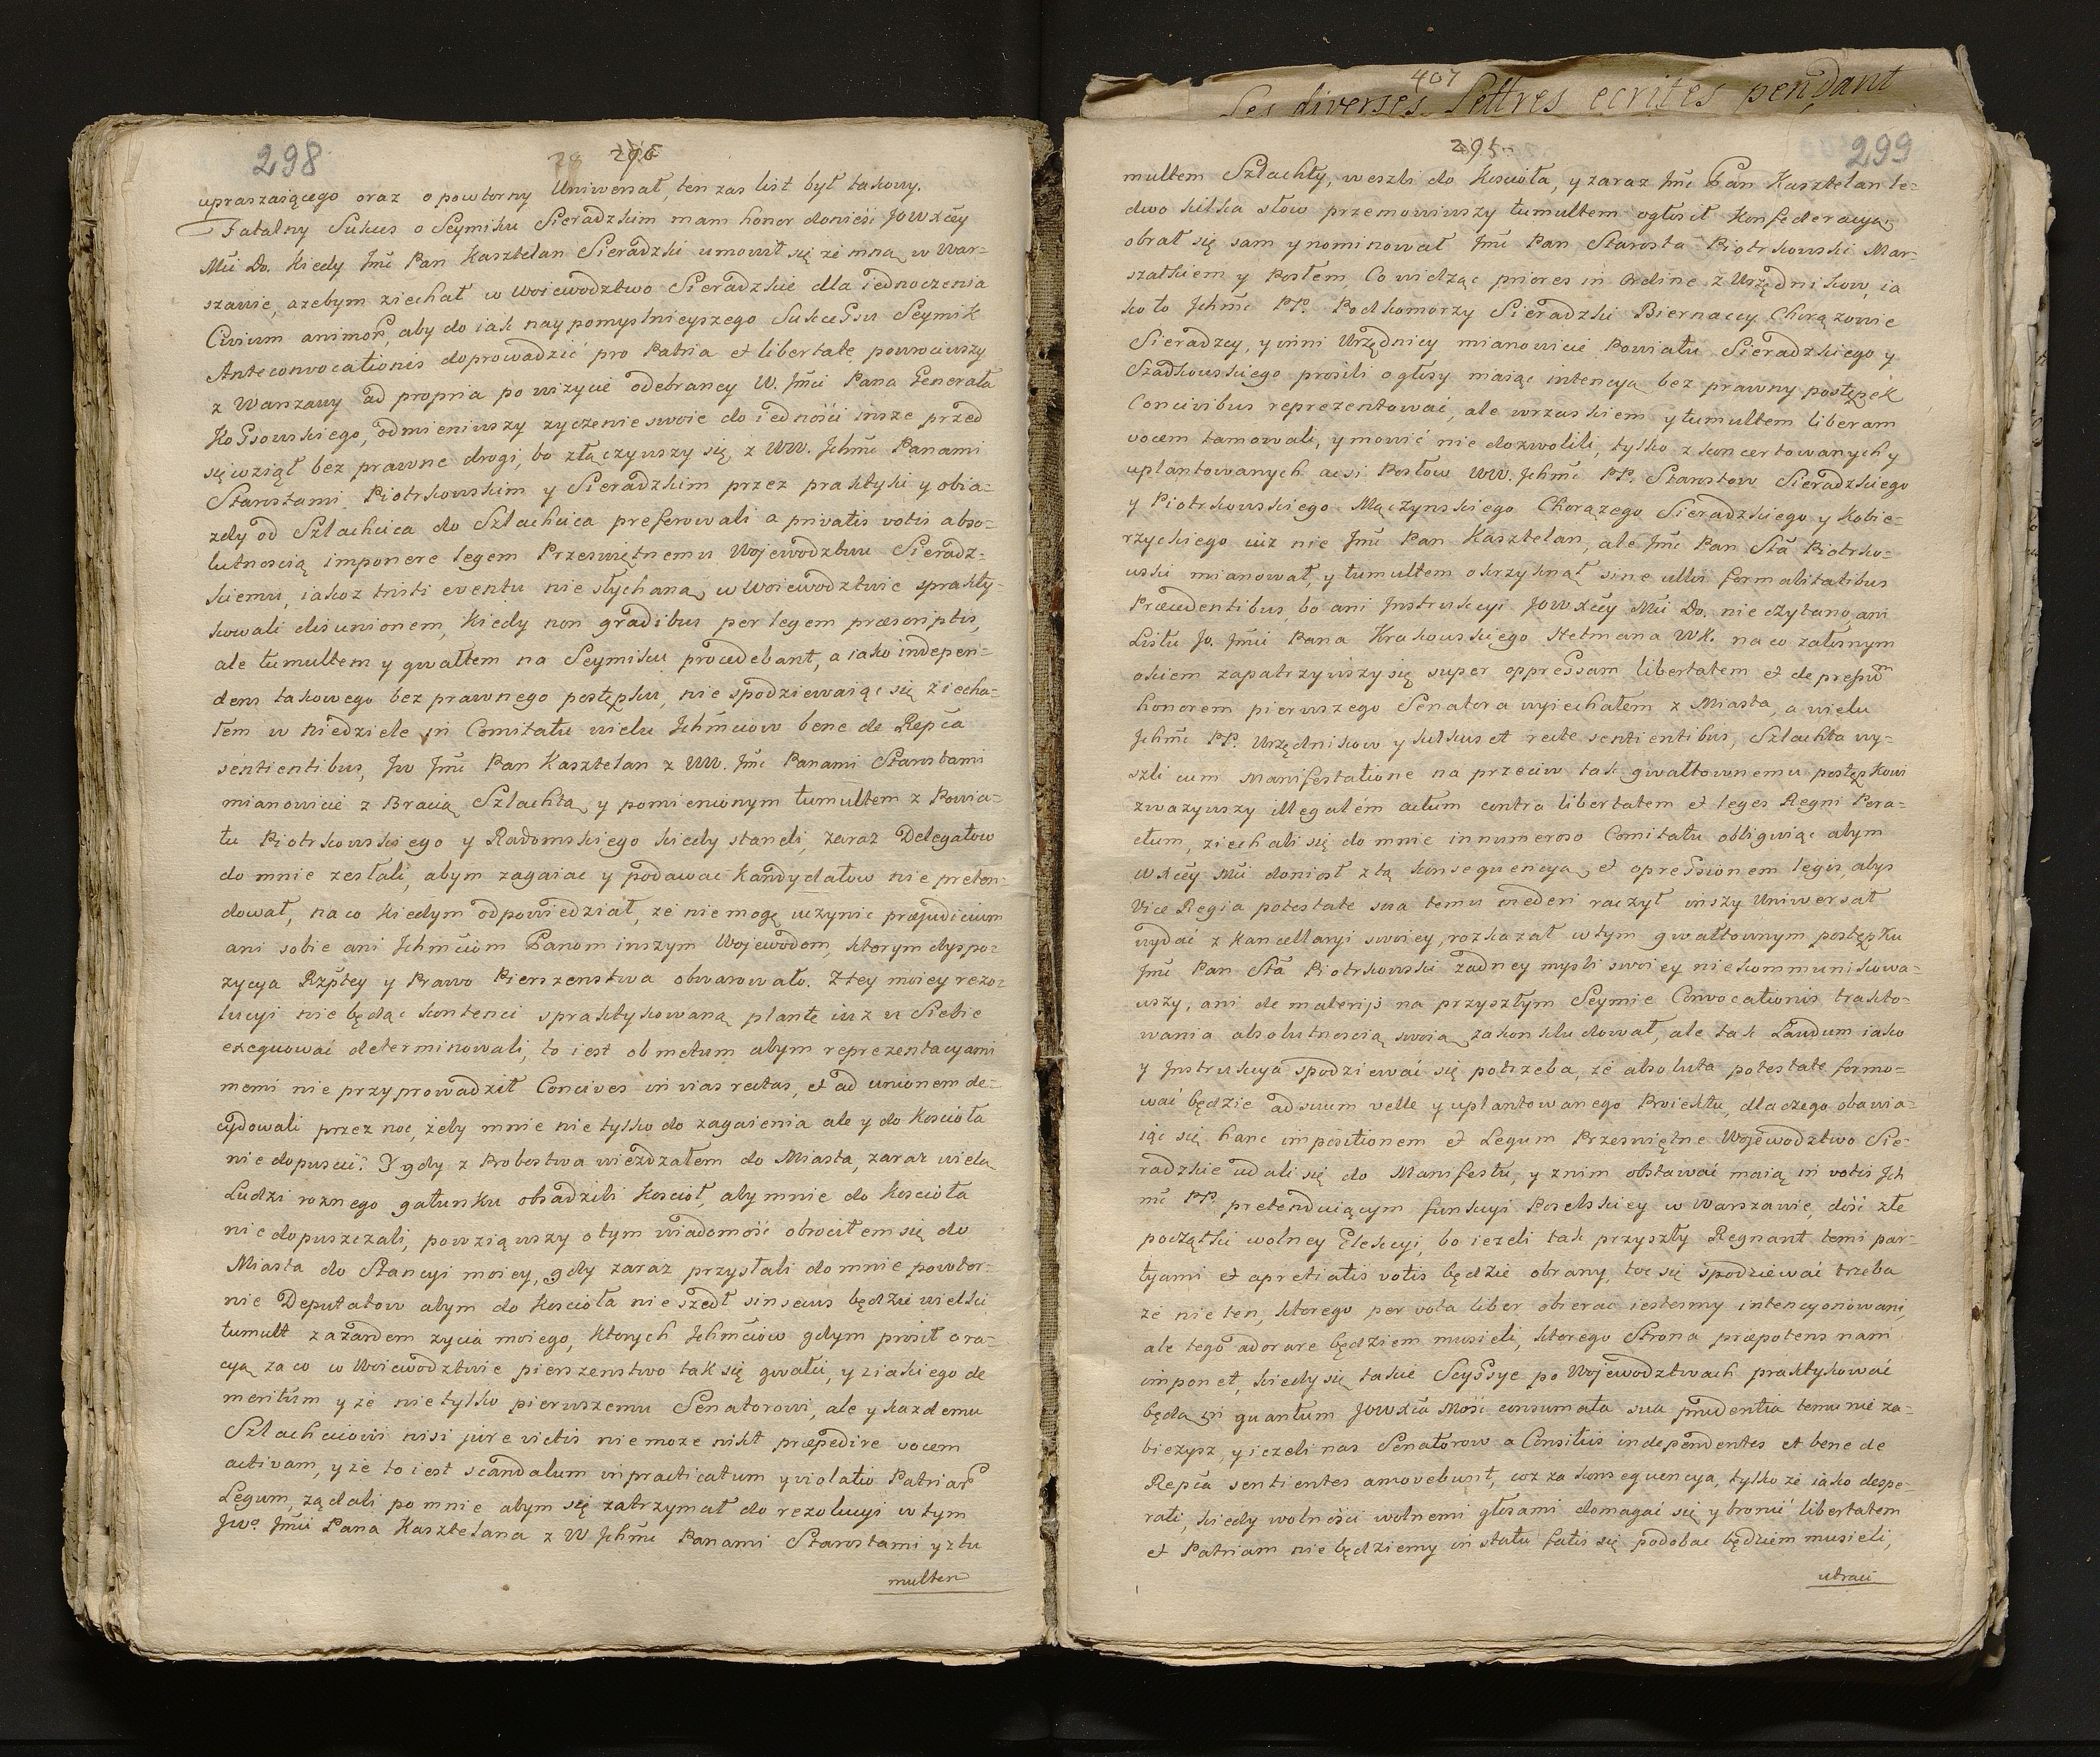 298 78 296
upraszaiącego oraz o powtorny Uniwersał, ten zas list był takowy.
Fatalny Sukces o Seymiku Sieradzkim mam honor donieść JOWXcey
Mći Do. Kiedy Jmć Pan Kasztelan Sieradzki umowił się ze mną w War-
szawie, azebym ziechał w Woiewodztwo Sieradzkie dla iednoczenia
Civium animor, aby do iak naypomyslnieyszego Sukcessu Seymik
Anteconvocationis doprowadzić pro Patria et libertate, powrociwszy
z Warszawy ad propria po wizycie odebraney W. Jmći Pana Generała
Kossowskiego, odmieniwszy zyczenie swoie do iedności insze przed
się wziął bez prawne drogi, bo złączywszy się z WW. Jchmć Panami
Starostami Piotrkowskim y Sieradzkim przez praktyki y obia-
zdy od Szlachcica do Szlachcica preferowali a privatis votis abso-
lutnoscią imponere legem Przeswiętnemu Wojewodztwu Sieradz-
kiemu, iakoz tristi eventu nie słychaną w Woiewodztwie sprakty-
kowali disunionem, kiedy non gradibus per legem præscriptis,
ale tumultem y gwałtem na Seymiku procedebant, a iako indepen-
dens takowego bez prawnego postępku, nie spodziewaiąc się ziecha-
łem w Niedziele in Comitatu wielu Jchmciow bene de Repca
sentientibus, Jw Jmć Pan Kasztelan z WW. Jmć Panami Starostami
mianowicie z Bracią Szlachtą y pomienionym tumultem z Powia-
tu Piotrkowskiego y Radomskiego kiedy staneli, zaraz Delegatow
do mnie zesłali, abym zagaiac y podawac Kandydatow nie preten-
dował, na co kiedym odpowiedział, ze nie mogę uczynic præjudicium
ani sobie ani Jchmciom Panom inszym Wojewodom, ktorym dyspo-
zycya Rzpltey y Prawo Pierszenstwa obwarowało. Z tey moiey rezo-
lucyi nie będąc kontenci spraktykowaną plantę iuz u Siebie
exequować determinowali, to iest obmetum abym reprezentacyami
memi nie przyprowadził Concives in vias rectas, et ad unionem de-
cydowali przez noc, żeby mnie nie tylko do zagaienia ale y do Kosciola
nie dopuscić. Y gdy z Probostwa wiezdzałem do Miasta, zaraz wiela
Ludzi roznego gatunku obsadzili Kosciół, aby mnie do Koscioła
nie dopuszczali, powziąwszy o tym wiadomość obrociłem się do
Miasta do Stancyi moiey, gdy zaraz przysłali do mnie powtor-
nie Deputatow abym do Koscioła nie szedł sin secus będzie wielki
tumult z azardem zycia moiego, ktorych Jchmciow gdym prosił o ra-
cyą za co w Woiewodztwie pierszenstwo tak się gwałci, y z iakiego de
meritum y ze nie tylko pierwszemu Senatorowi, ale y kazdemu
Szlachcicowi nisi jure victis nie moze nikt præpedire vocem
activam, y ze to iest scandalum inpracticatum y violatio Patriar
Legum, ządali po mnie abym się zatrzymał do rezolucyi w tym
Jwo Jmći Pana Kasztelana z W Jchmć Panami Starostami y z tu
multem
407
Les diverses Lettres ecrites pendant
295 299
multem Szlachty, weszli do Koscioła, y zaraz Jmć Pan Kasztelan le-
dwo kilka słow przemowiwszy tumultem ogłosił Konfederacyą
obrał się sam y nominował Jmć Pan Starosta Piotrkowski Mar-
szałkiem y Posłem, Co widząc priores in Ordine z Urzędnikow, ia
ko to Jchmć PP. Podkomorzy Sieradzki Biernaccy Chorązowie
Sieradzcy, y inni Urzędnicy mianowicie Powiatu Sieradzkiego y
Szadkowskiego prosili o głosy maiąc intencyą bez prawny postępek
Concivibus reprezentować, ale wrzaskiem y tumultem liberam
vocem tamowali, y mowić nie dozwolili, tylko z koncertowanych y
uplantowanych acsi Posłow WW. Jchmć PP. Starostow Sieradzkiego
y Piotrkowskiego Mączynskiego Chorązego Sieradzkiego y Kobie-
rzyckiego iuz nie Jmć Pan Kasztelan, ale Jmć Pan Sta Piotrko-
wski mianował, y tumultem okrzyknął sine ullis formalitatibus
Præcedentibus, bo ani Jnstrukcyi JOWXcey Mći Do. nie czytano, ani
Listu Jo. Jmći Pana Krakowskiego Hetmana WK. na co załosnym
okiem zapatrzywszy się super oppressam libertatem et depressum
honorem pierwszego Senatora wyiechałem z Miasta, a wielu
Jchmć PP. Urzędnikow y kilkuset recte sentientibus, Szlachta wy-
szli cum Manifestatione na przeciw tak gwałtownemu postępkowi
zwazywszy illegalem actum contra libertatem et leges Regni Pera-
ctum, ziechali się do mnie in numeroso Comitatu obliguiąc abym
WXcey Mći doniosł złą konsequencyą, et opressionem legis, abys
Vice Regia potestate sua temu mederi raczył inszy Uniwersał
wydać z Kancellaryi swoiey, rozkazał w tym gwałtownym postępku
Jmć Pan Sta Piotrkowski zadney mysli swoiey nie kommunikowa-
wszy, ani de materijs na przyszłym Seymie Convocationis trakto-
wania absolutnoscią swoią zakonkludował, ale tak Laudum iako
y Jnstrukcya spodziewać się potrzeba, ze absoluta potestate formo-
wać będzie ad suum velle y uplantowanego Proiektu, dla czego obawia-
iąc się hanc impositionem et Legum Przeswiętne Wojewodztwo Sie-
radzkie udali się do Manifestu, y z nim obstawać maią in votis Jch
mć PP. pretenduiącym funkcyi Poselskiey w Warszawie, dość złe
początki wolney Elekcyi, bo iezeli tak przyszły Regnant temi par-
tyami et apretiatis votis będzie obrany, toc się spodziewać trzeba
ze nie ten, ktorego per vota liber obierac iestesmy intencyonowani,
ale tego adorare będziem musieli, ktorego Strona præpotens nam
imponet, kiedy się takie Scyssye po Wojewodztwach praktykować
będą in quantum JOWXca Mość consumata sua prudentia temu nie za-
biezysz, y iezeli nas Senatorow a Consiliis independentes et bene de
Repca sentientes amovebunt, coz za konsequencya, tylko ze iako despe-
rati, kiedy wolności wolnemi głosami domagać się y bronić libertatem
et Patriam nie będziemy in statu fatis się podobac będziem musieli,
utraci